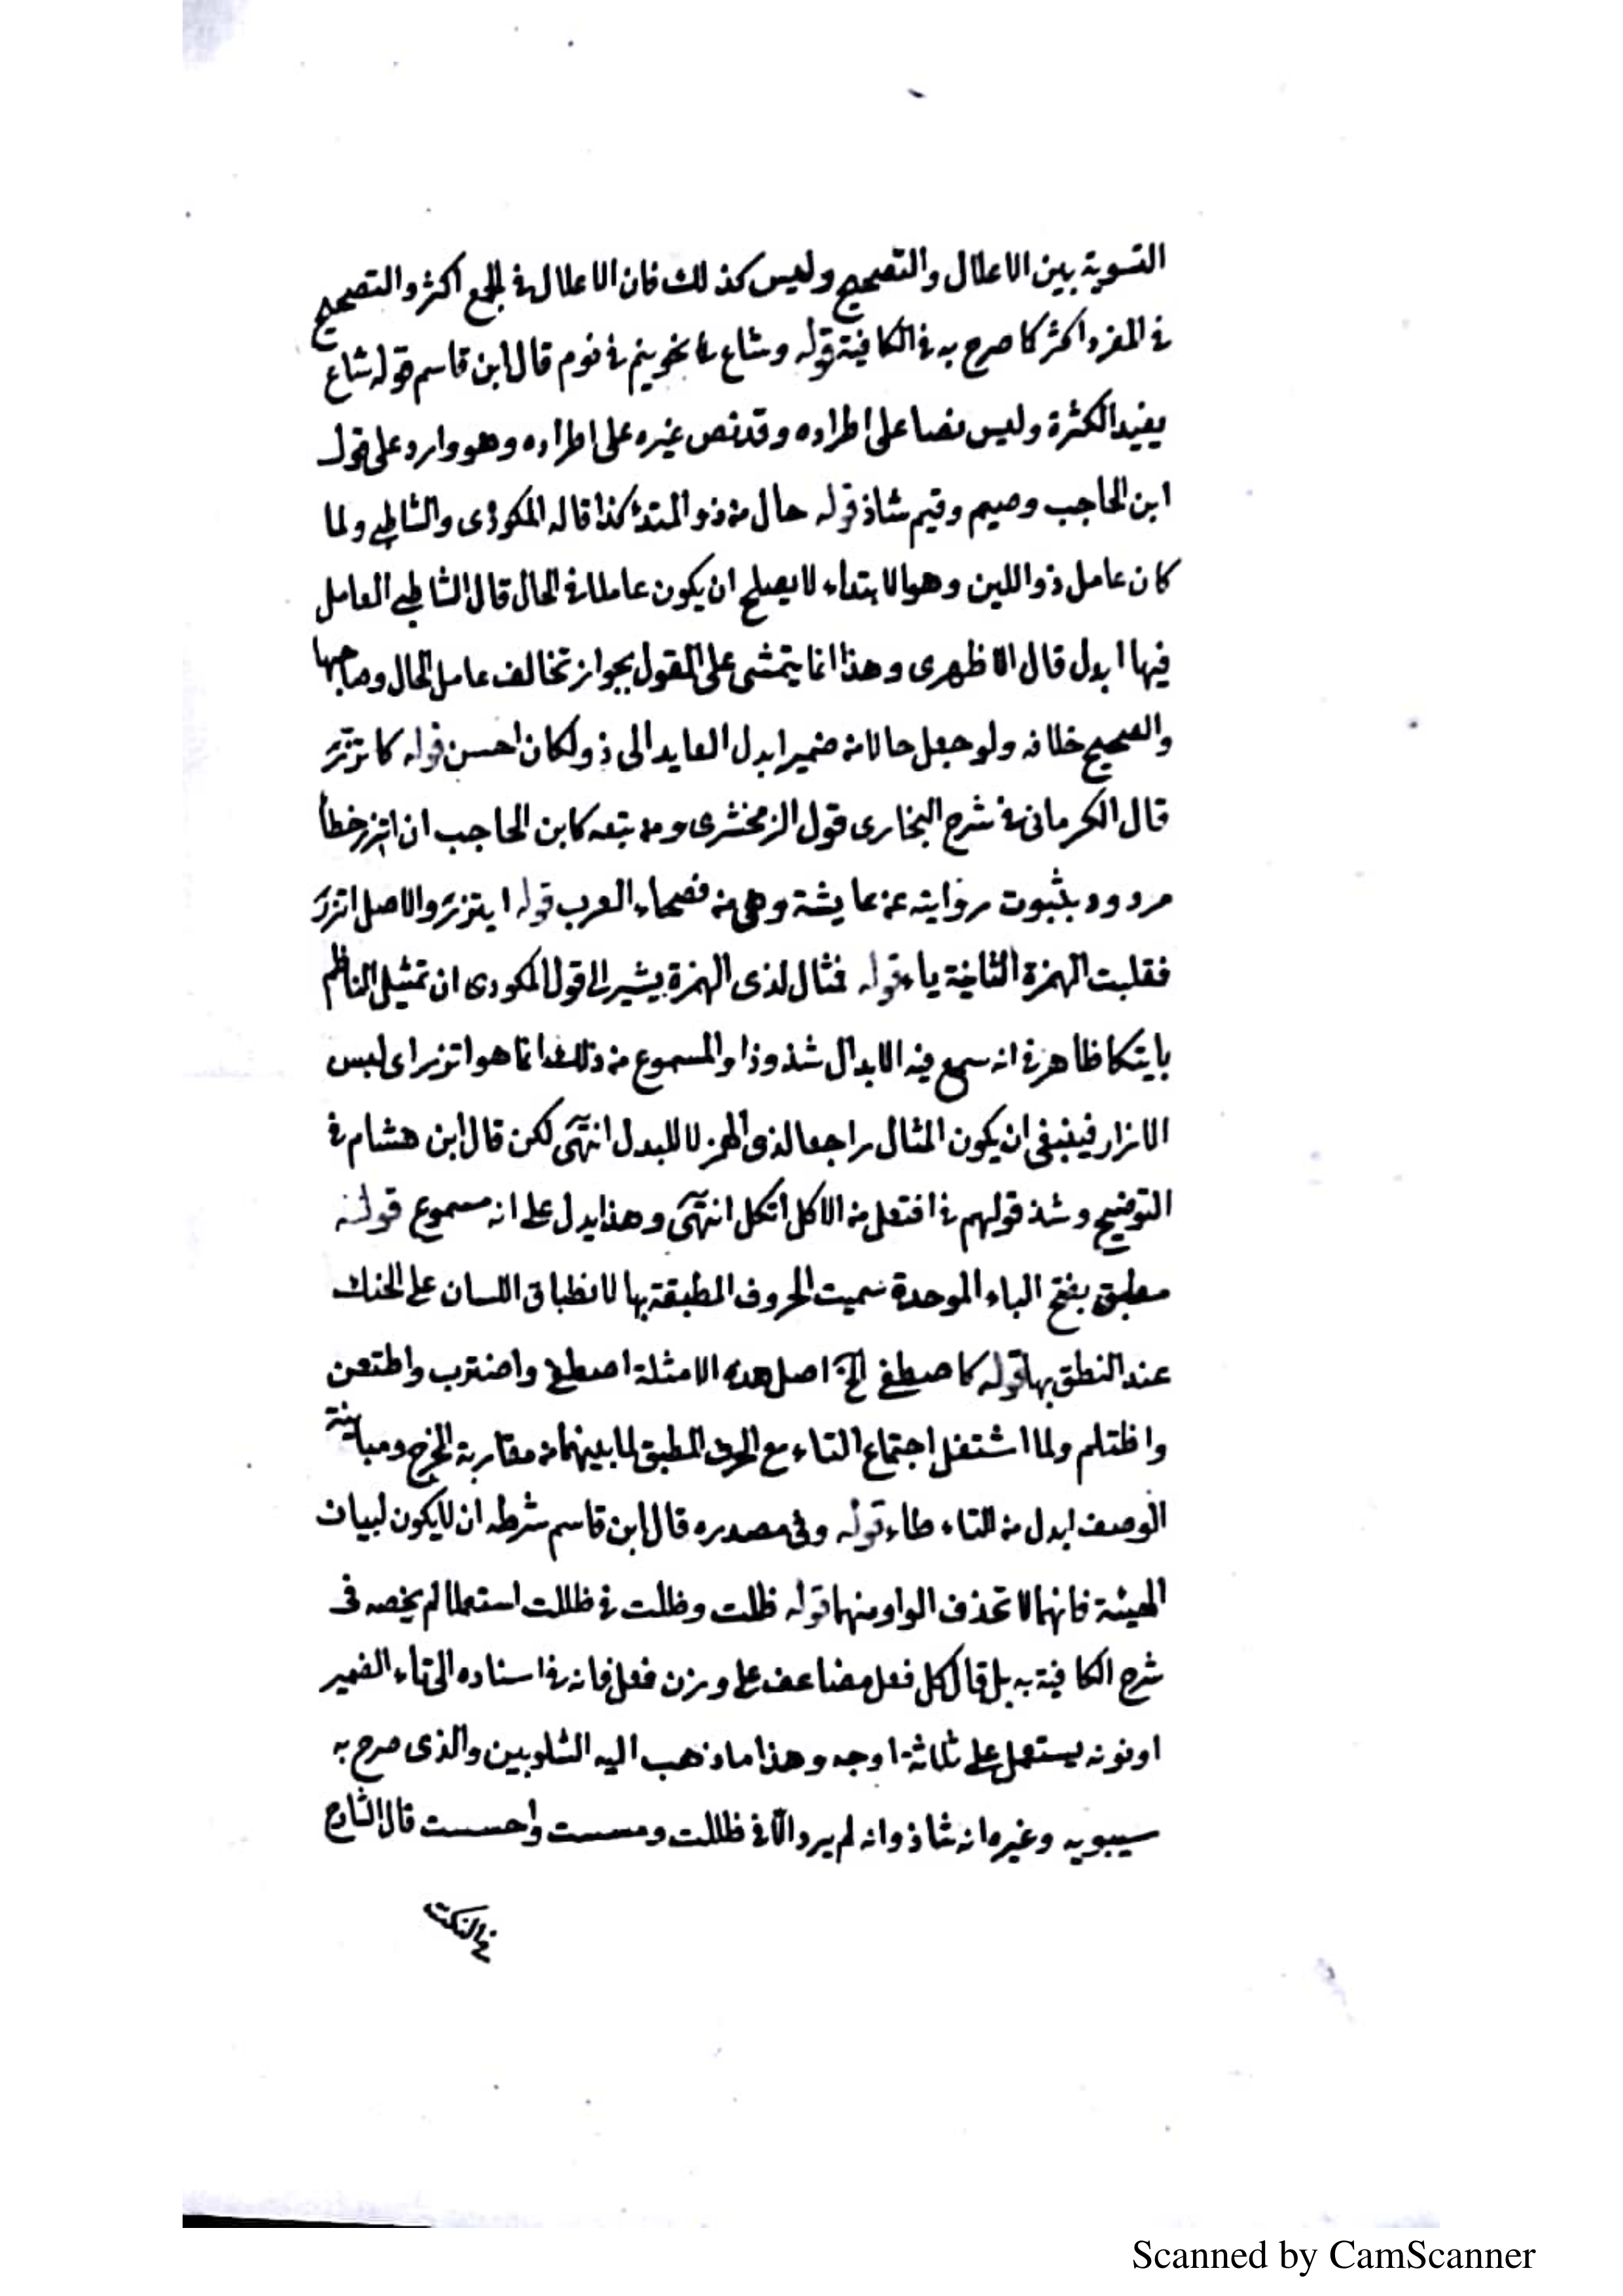 التسوية بين الاعلال والتصحيح وليس كذلك فان الاعلال في الجمع اكثر والتصحيح
في المفرد اكثر كما صرح به في الكافية قوله وشاع نحو نيم في نوم قال ابن قاسم قوله شاع
يفيد الكثرة وليس نصا على اطراده وقد نص غيره على اطراده وهو وارد على قول
ابن الحاجب وصيم وقيم شاذ قوله حال من ذو المبتدا كذا قاله المكودى والشاطبي ولما
كان عامل ذو اللين وهو الابتداء لا يصلح ان يكون عاملا في الحال قال الشاطبي العامل
فيها ابدل قال الازهرى وهذا انما يتمشى على القول بجواز تخالف عامل الحال وصاحبها
والصحيح خلافه ولو جعل حالا من ضمير ابدل العايد الى ذو لكان احسن قوله كاتزر
قال الكرمانى في شرح البخارى قول الزمخشرى ومن تبعه كابن الحاجب ان اتزر خطأ
مردود بثبوت روايته عن عايشة وهى من فصحاء العرب قوله ايتزر والاصل ائتزر
فقلبت الهمزة الثانية ياء قوله فمثال لذى الهمزة يشير الى قول المكودى ان تمثيل الناظم
بايتكلا ظاهر في انه سمع فيه الابدال شذوذا والمسموع من ذلك انما هو اتزر اى لبس
الازار فينبغى ان يكون المثال راجعا لذى الهمز لا للبدل انتهى لكن قال ابن هشام في
التوضيح وشذ قولهم في افتعل من الاكل اتكل انتهى وهذا يدل على انه مسموع قوله
مطبق بفتح الباء الموحدة سميت الحروف المطبقة بها لانطباق اللسان على الحنك
عند النطق بها قوله كاصطفى الخ اصل هذه الامثلة واضترب واطتعن
واظتلم ولما استثقل اجتماع التاء مع الحرف المطبق لما بينهما من مقاربة المخرج ومباينة
الوصف ابدل من التاء طاء قوله وفى مصدره قال ابن قاسم شرطه ان لا يكون لبيان
الهيئة فانهما لا تحذف الواو منهما قوله ظلت وظلت في ظللت استعملا لم يخصه فى
شرح الكافية به بل قال كل فعل مضاعف على وزن فعل فانه في اسناده الى تاء الضمير
او نونه يستعمل على ثلاثة اوجه وهذا ما ذهب اليه الشلوبين والذى صرح به
سيبويه وغيره انه شاذ وانه لم يرد الا في ظللت ومسست واحسست قال الشارح
في النكت
Scanned by CamScanner